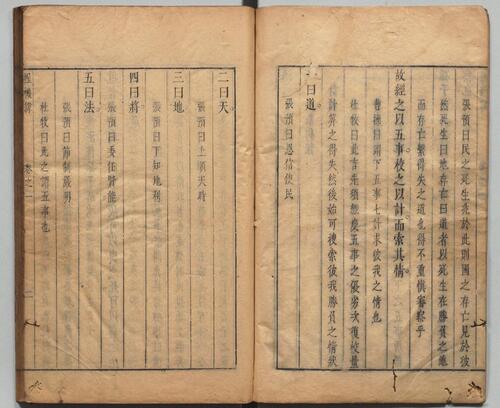 張預曰民之死生兆於此則國之存亡見於彼
然死生曰地存亡曰道者以死生在勝負之地
而存亡繫得失之道也得不重慎審察乎
故經之以五事校之以計而索其情
曹操曰謂下五事七計求彼我之情也
杜牧曰此言先須經度五事之優劣次復校量
計算之得失然後始可搜索彼我勝負之情狀
一曰道
張預曰恩信使民
二曰天
張預曰上順天時
三曰地
張預曰下知地利
四曰將
張預曰委任賢能
五曰法
張預曰節制嚴明
杜牧曰此之謂五事也
卷之一
二